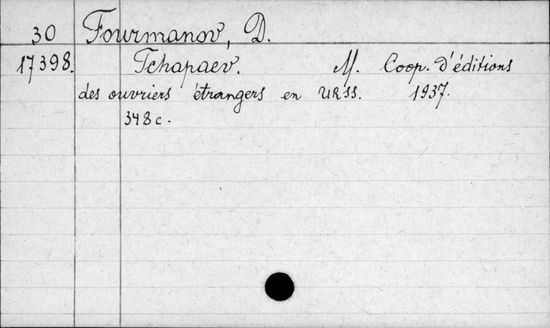 30 Fourmanov, D.
17398. Tchapaev. M. Coop. d'éditions
des ouvriers étrangers en URSS. 1937.
348 c.